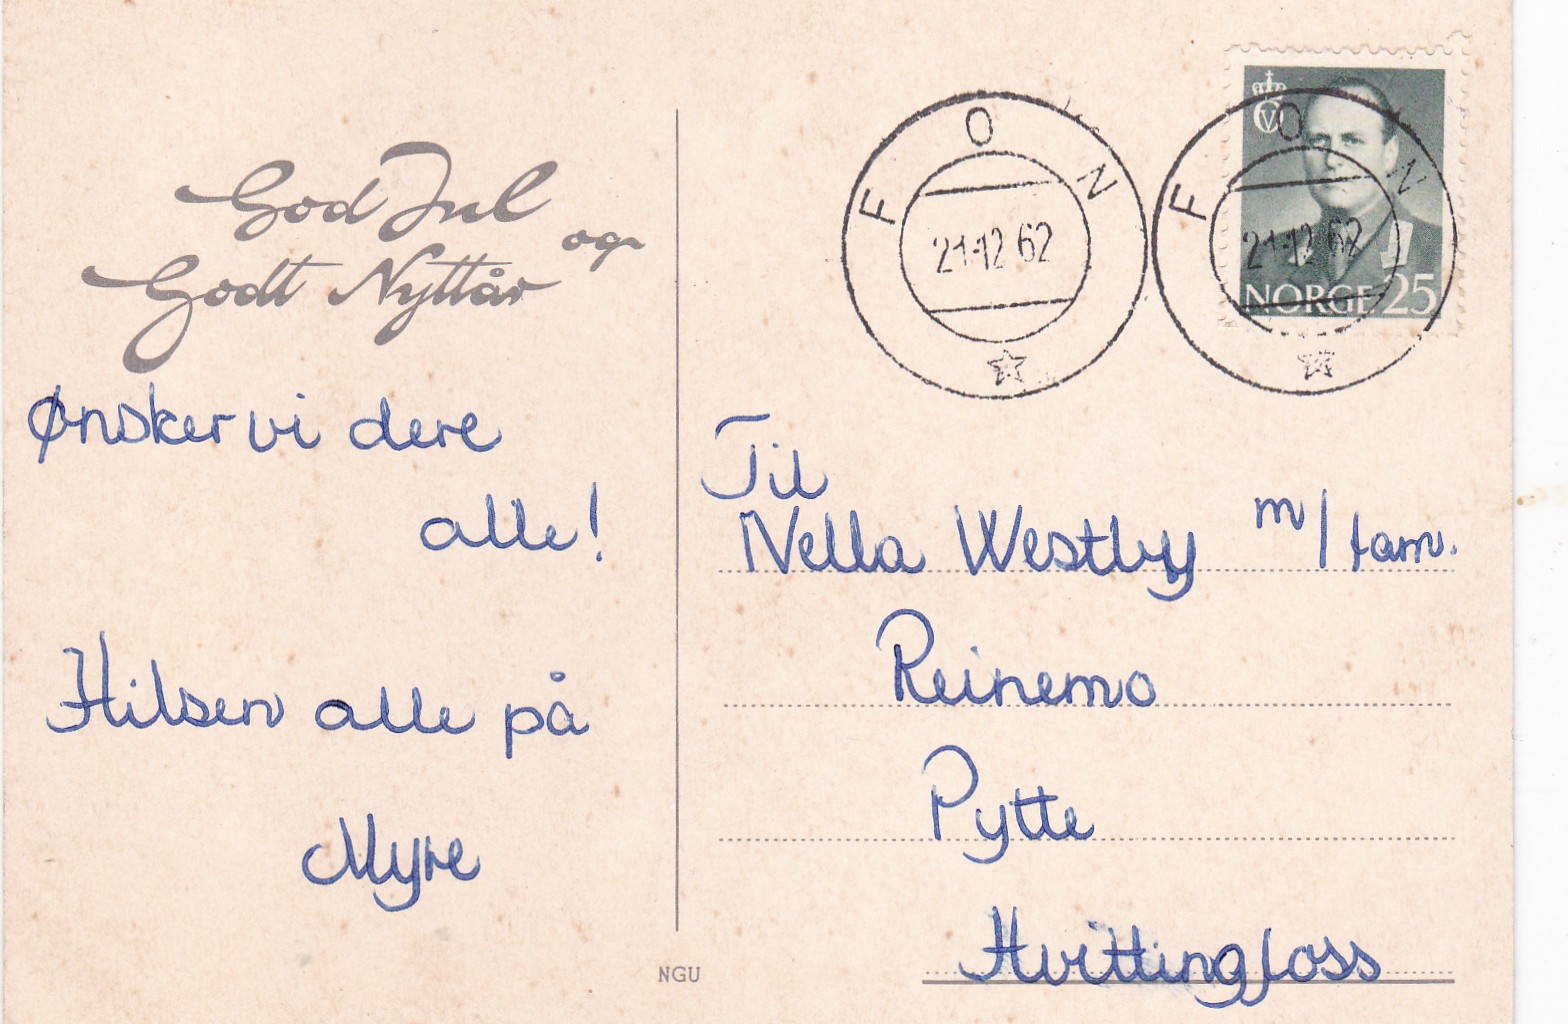 God Jul
og
Godt Nyttår
Ønsker vi dere
alle!
Hilsen alle på
Myre
NGU
FON
21.12.62
FON
21.12.62
NORGE 25
Til
Nella Westby m/fam.
Reinemo
Pytte
Hvittingfoss